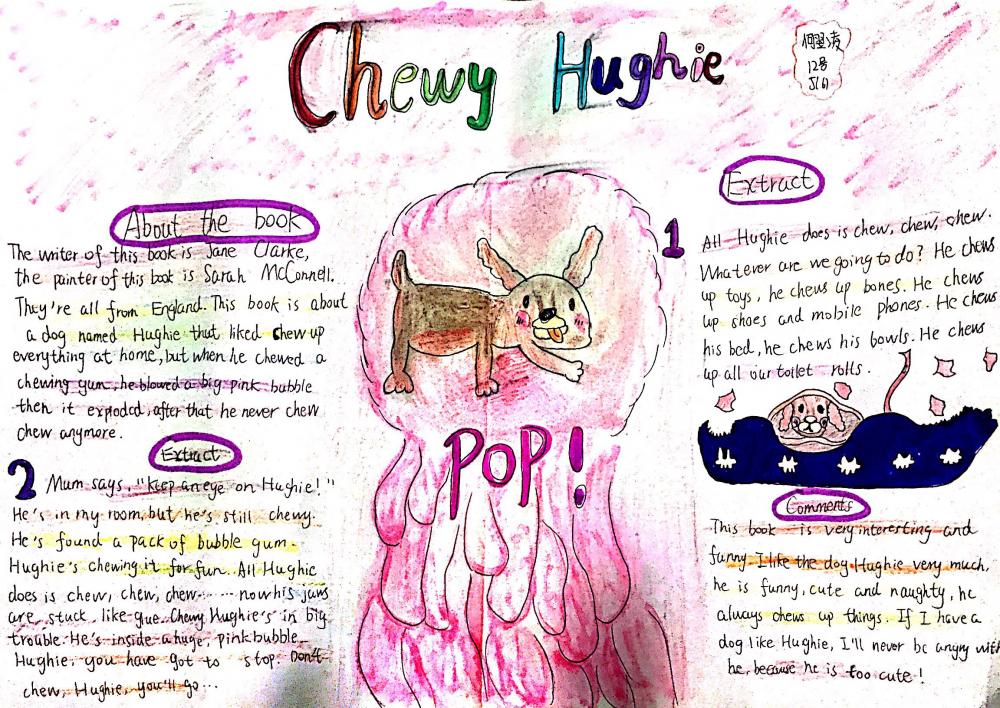 Chewy Hughie
12号
5(6)
About the book
The writer of this book is Jane Clarke,
the painter of this book is Sarah McConnell.
They're all from England. This book is about
a dog named Hughie that liked chew up
everything at home, but when he chewed a
chewing gum, he blowed a big pink bubble
then it expoded, after that he never chew
chew anymore.
Extract
1
All Hughie does is chew, chew, chew.
Whatever are we going to do? He chews
up toys, he chews up bones. He chews
up shoes and mobile phones. He chews
his bed, he chews his bowls. He chews
up all our toilet rolls.
Extract
2 Mum says, "Keep an eye on Hughie!"
He's in my room, but he's still chewy.
He's found a pack of bubble gum.
Hughie's chewing it for fun. All Hughie
does is chew, chew, chew...... now his jaws
are stuck like glue. Chewy Hughie's in big
trouble. He's inside a huge, pink bubble.
Hughie, you have got to stop. Don't
chew, Hughie, you'll go...
POP!
Comments
This book is very interesting and
funny. I like the dog Hughie very much,
he is funny, cute and naughty, he
always chews up things. If I have a
dog like Hughie, I'll never be angry with
he, because he is too cute!